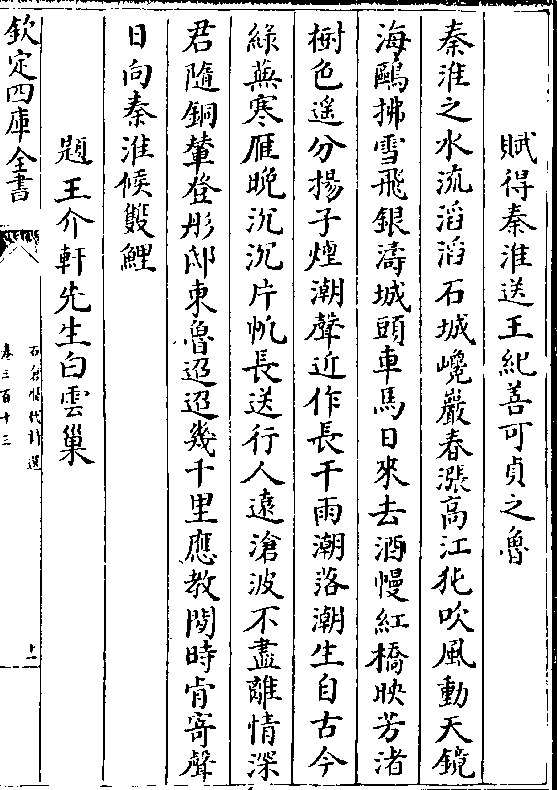 賦得秦淮送王紀善可貞之魯
秦淮之水流滔滔石城巉巖春漲高江㹠吹風動天鏡
海鷗拂雪飛銀濤城頭車馬日來去酒幔紅橋映芳渚
樹色遥分揚子煙潮聲近作長干雨潮落潮生自古今
綠蕪寒雁晚沉沉片帆長送行人遠滄波不盡離情深
君隨銅輦登彤邸東魯迢迢幾千里應教閑時肯寄聲
日向秦淮候雙鯉
題王介軒先生白雲巢
欽定四庫全書
石倉歷代詩選
卷三百十三